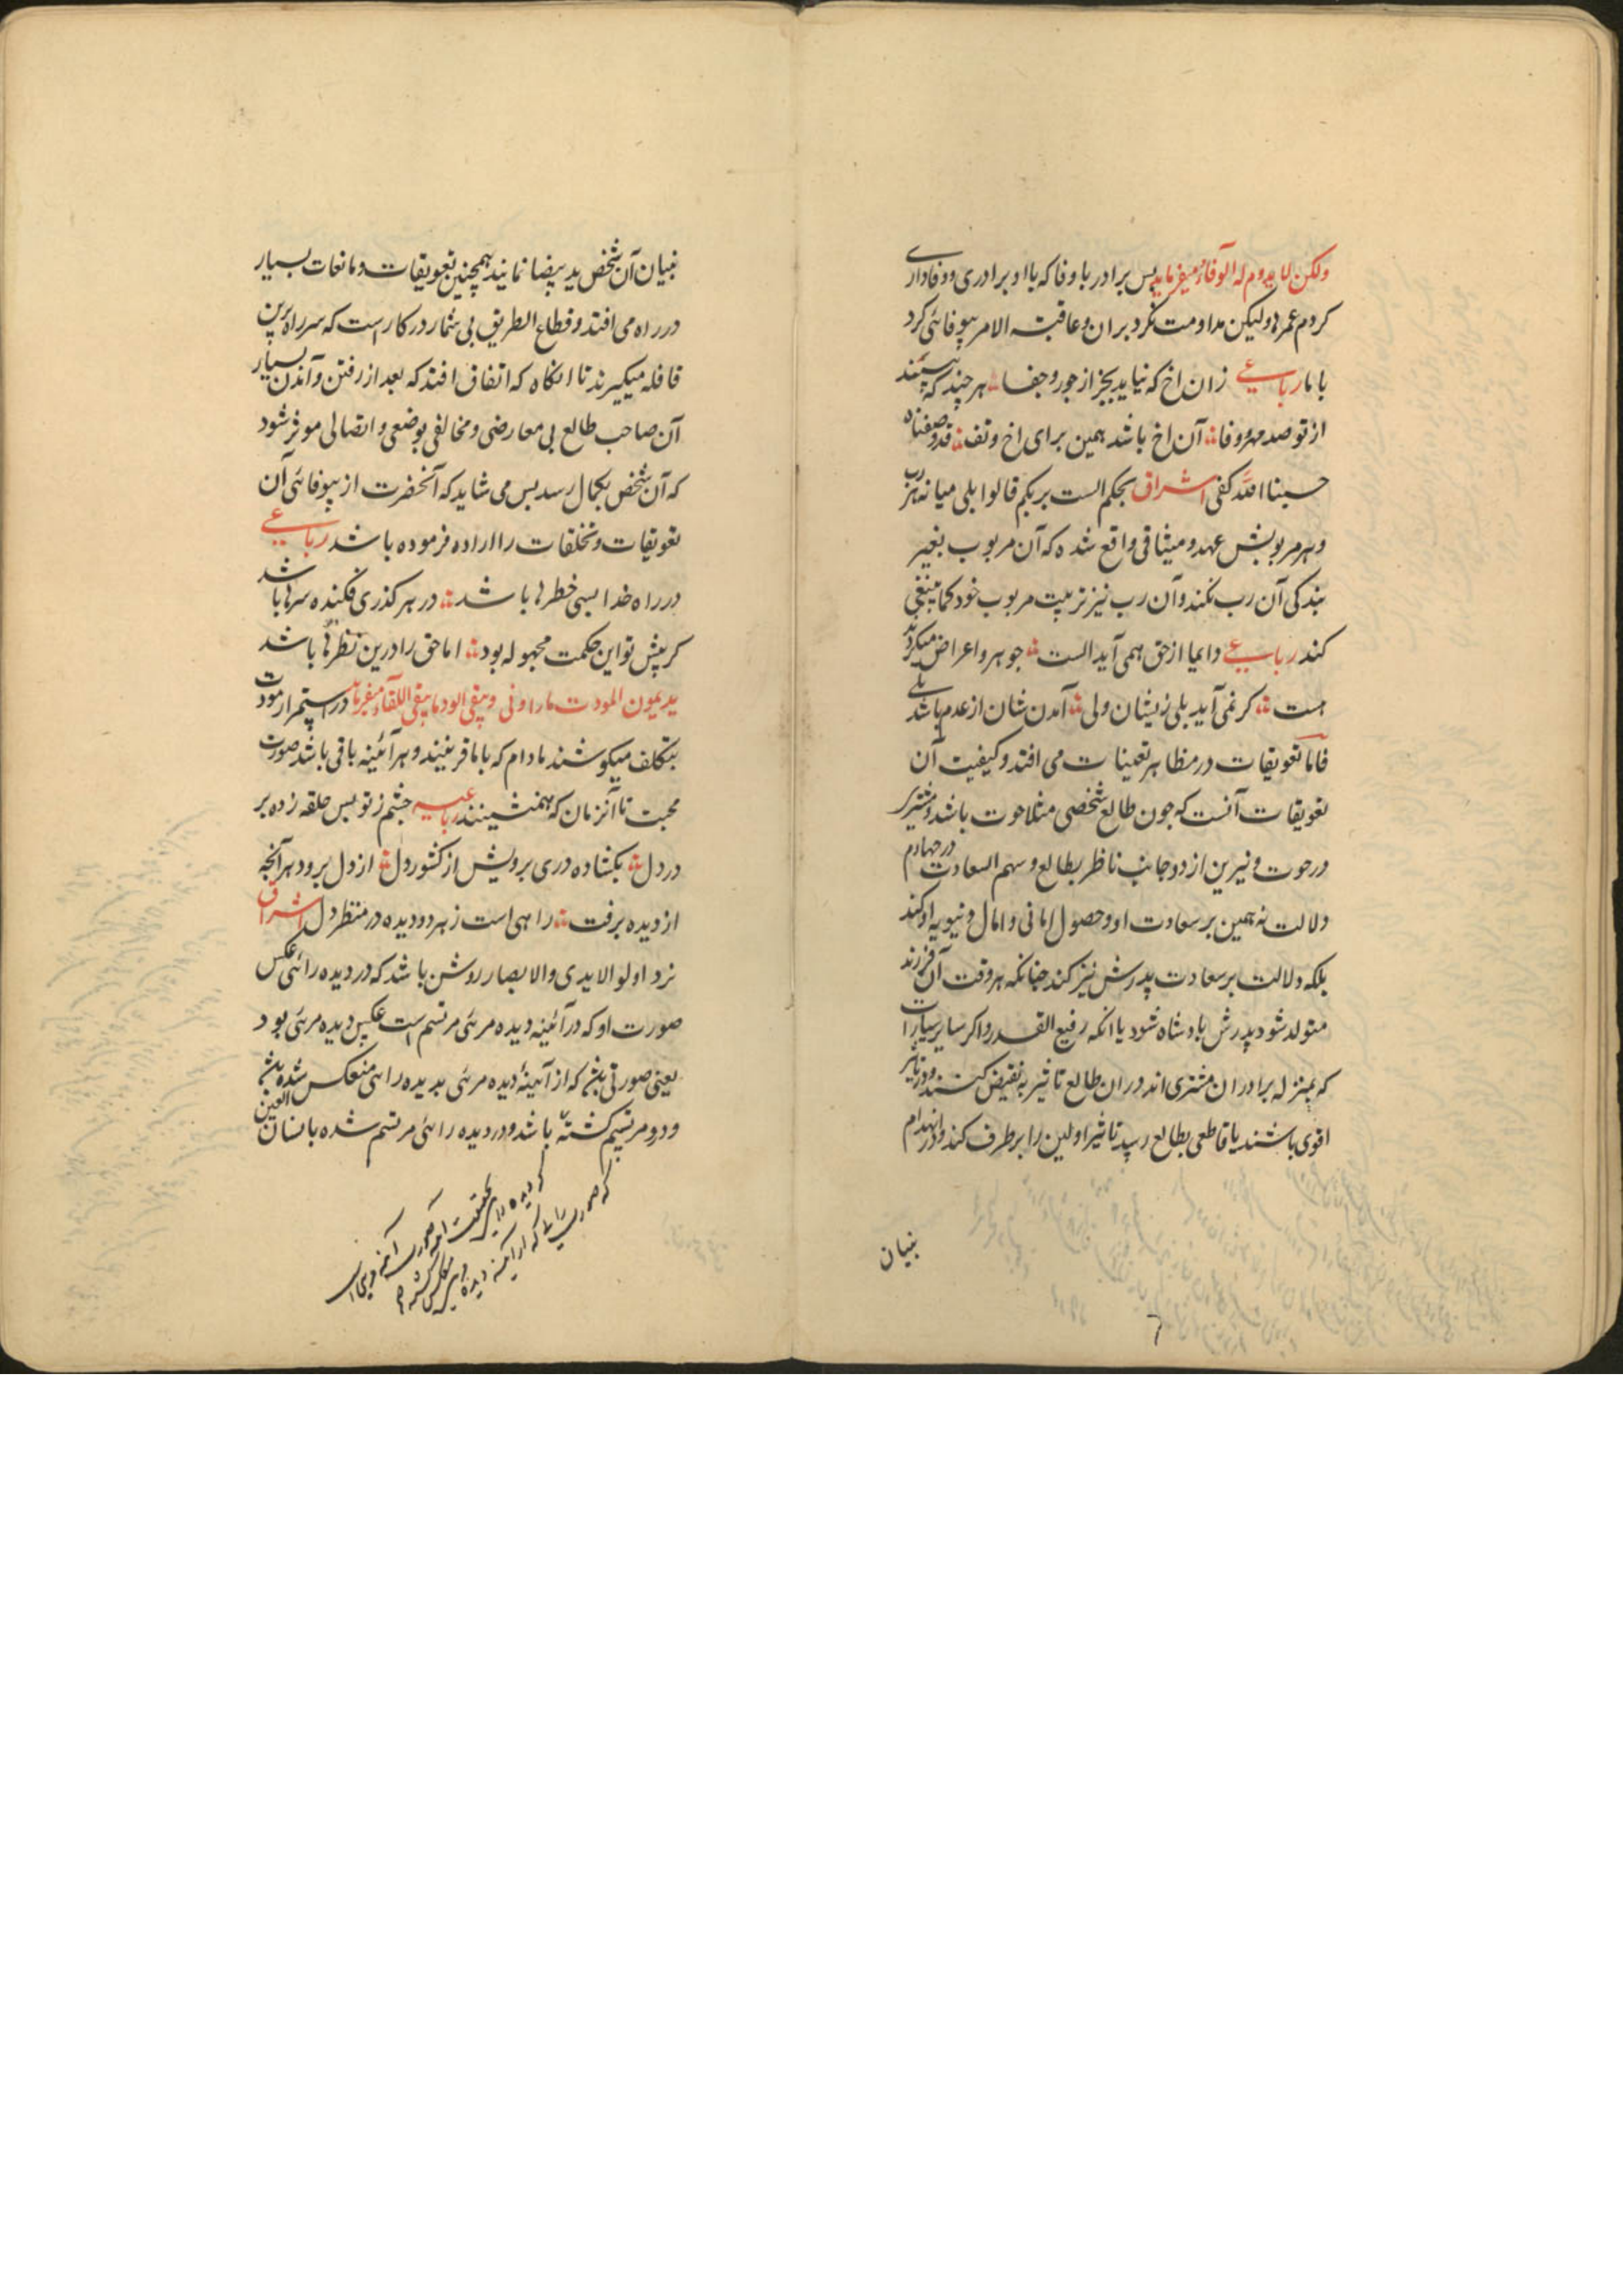 ولكن لا يدوم له الوفاء ميفرمايد پس برادر با وفا كه با او برادرى و وفادارى
كردم عمرها وليكن مداومت نكرد بران و عاقبة الامر بيوفائى كرد
با ما رباعى زان اخ كه نيايد بجز از جور و جفا هر چند كه بيند
از تو صد مهر و وفا آن اخ باشد همين براى اخ و تف قد وصفناه
حسبنا الله كفى اشراق بحكم الست بربكم قالوا بلى ميانه هر رب
و هر مربوبش عهد و ميثاقى واقع شده كه آن مربوب بغير
بندكى آن رب نكند و آن رب نيز تربيت مربوب خود كما ينبغى
كند رباعى دايما از حق همى آيد الست جوهر و اعراض ميكردند
هست كر نمى آيد بلى زيشان ولى آمدن شان از عدم باشد بلى
فاما تعويقات در مظاهر تعينات مى افتد و كيفيت آن
تعويقات آنست كه چون طالع شخصى مثلا حوت باشد و مشترى
در حوت و نيرين از دو جانب ناظر بطالع و سهم السعادت در چهارم
دلالت نه همين بر سعادت او و حصول امانى و امال دنيويه او كند
بلكه دلالت بر سعادت پدرش نيز كند چنانكه هر وقت آن فرزند
متولد شود پدرش بادشاه شود يا انكه رفيع القدر و اكر ساير سيارات
كه بمنزله برادران مشترى اند در ان طالع تاثير به نقيض كنند و در تاثير
اقوى باشند يا قاطعى بطالع رسد تاثير اولين را بر طرف كند و در انهدام
بنيان
بنيان آن شخص يد بيضا نمايند همچنين تعويقات و مانعات بسيار
در راه مى افتد و قطاع الطريق بى شمار در كار است كه سر راه برين
قافله ميكيرند تا انكاه كه اتفاق افتد كه بعد از رفتن و آمدن بسيار
آن صاحب طالع بى معارضى و مخالفى بوضعى و اتصالى موثر شود
كه آن شخص بكمال رسد پس مى شايد كه آنحضرت از بيوفائى آن
تعويقات و تخلفات را اراده فرموده باشد رباعى
در راه خدا بسى خطرها باشد در هر كذرى فكنده سرها باشد
كر پيش تو اين حكمت مجهوله بود اما حق را درين نظرها باشد
يديمون المودت ما راونى و يبقى الود ما يبقى اللقاء ميفرمايد در استمرار مودت
بتكلف ميكوشند مادام كه با ما قرينند و هر آئينه باقى باشد صورت
محبت تا آنزمان كه همنشينند رباعيه چشم ز تو بس حلقه زده بر
در دل بكشاده درى برويش از كشور دل از دل برود هر آنچه
از ديده برفت راهى است ز هر دو ديده در منظر دل اشراق
نزد اولو الايدى والابصار روشن باشد كه در ديده رائى عكس
صورت او كه در آئينه ديده مرئى مرتسم است عكس ديده مرئى بود
يعنى صورتى كه از آيينهٔ ديده مرئى بديده رائى منعكس شده
و درو مرتسم كشته باشد و در ديده رائى مرتسم شده بانسان العين